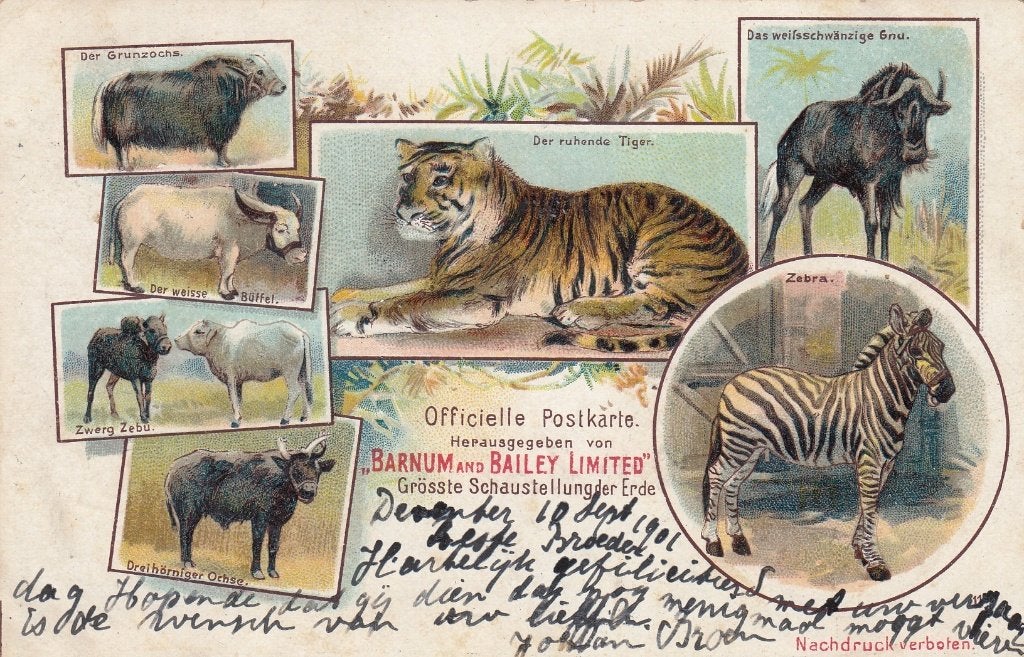 Der Grunzochs.
Das weißschwänzige Gnu.
Der ruhende Tiger.
Der weisse Büffel.
Zebra.
Zwerg Zebu.
Dreihörniger Ochse.
Officielle Postkarte.
Herausgegeben von
„BARNUM AND BAILEY LIMITED"
Grösste Schaustellung der Erde
Deventer 10 Sept 1901
Beste Broeder
Hartelijk gefiliciteerd met uw verjaar
dag Hopende dat gij dien dag nog menigmaal moogt vieren
is de wensch van uw liefh.
Johan Broer
Nachdruck verboten.